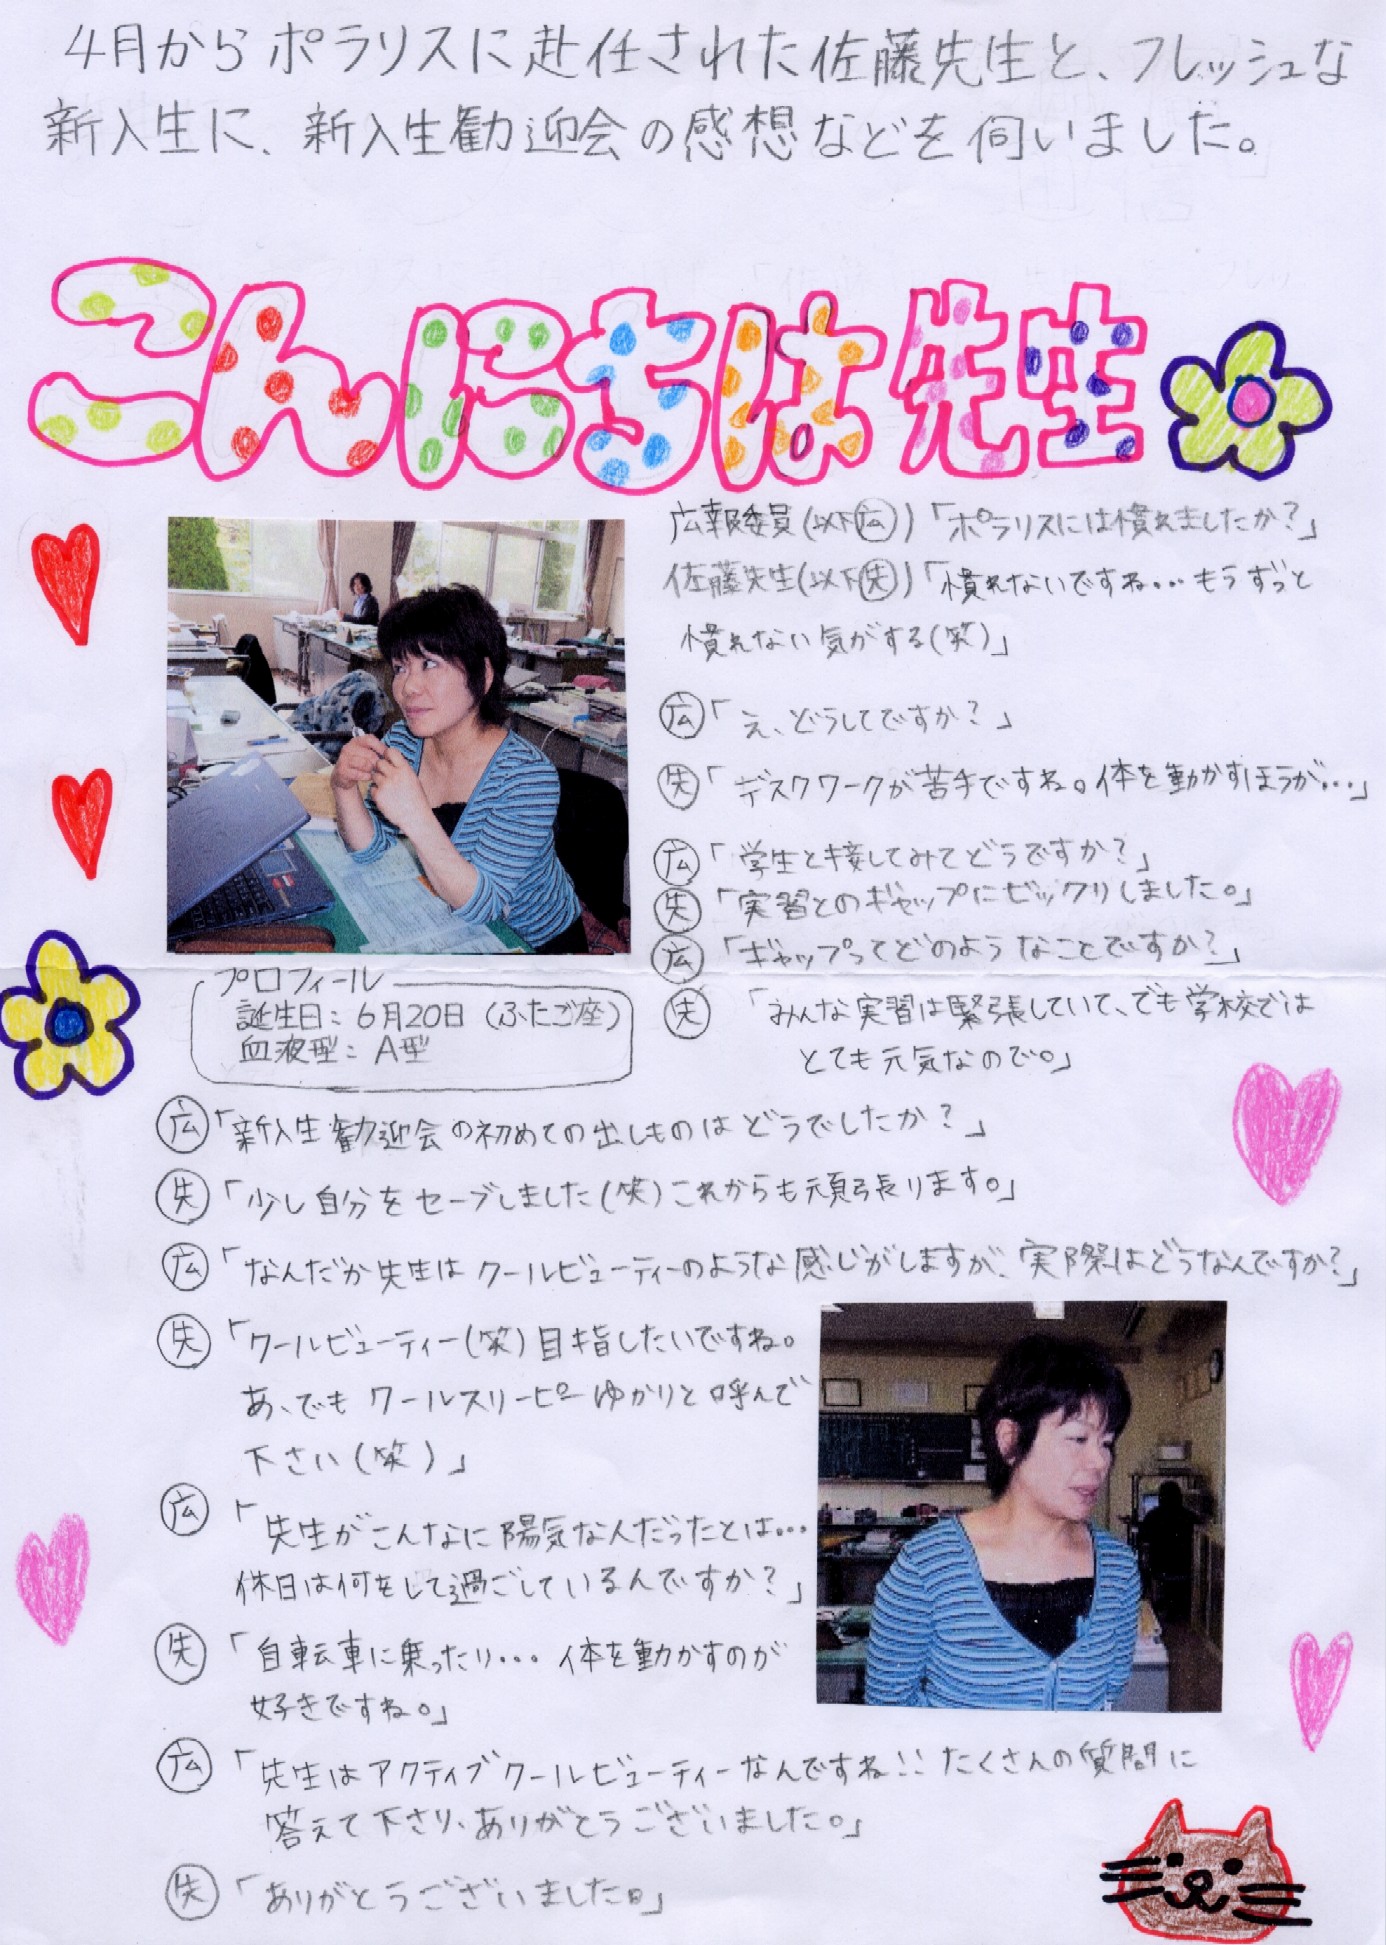 4月からポラリスに赴任された佐藤先生と、フレッシュな
新入生に、新入生勧迎会の感想などを伺いました。
こんにちは先生
広報委員(以下広)「ポラリスには慣れましたか?」
佐藤先生(以下先)「慣れないですね...もうずっと
慣れない気がする(笑)」
広「え、どうしてですか?」
先「デスクワークが苦手ですね。体を動かすほうが...」
広「学生と接してみてどうですか?」
先「実習とのギャップにビックリしました。」
広「ギャップってどのようなことですか?」
先「みんな実習は緊張していて、でも学校では
とても元気なので。」
プロフィール
誕生日:6月20日(ふたご座)
血液型:A型
広「新入生勧迎会の初めての出しものはどうでしたか?」
先「少し自分をセーブしました(笑)これからも頑張ります。」
広「なんだか先生はクールビューティーのような感じがしますが、実際はどうなんですか?」
先「クールビューティー(笑)目指したいですね。
あ、でもクールスリーピーゆかりと呼んで
下さい(笑)」
広「先生がこんなに陽気な人だったとは...
休日は何をして過ごしているんですか?」
先「自転車に乗ったり...体を動かすのが
好きですね。」
広「先生はアクティブクールビューティーなんですね!!たくさんの質問に
答えて下さり、ありがとうございました。」
先「ありがとうございました。」